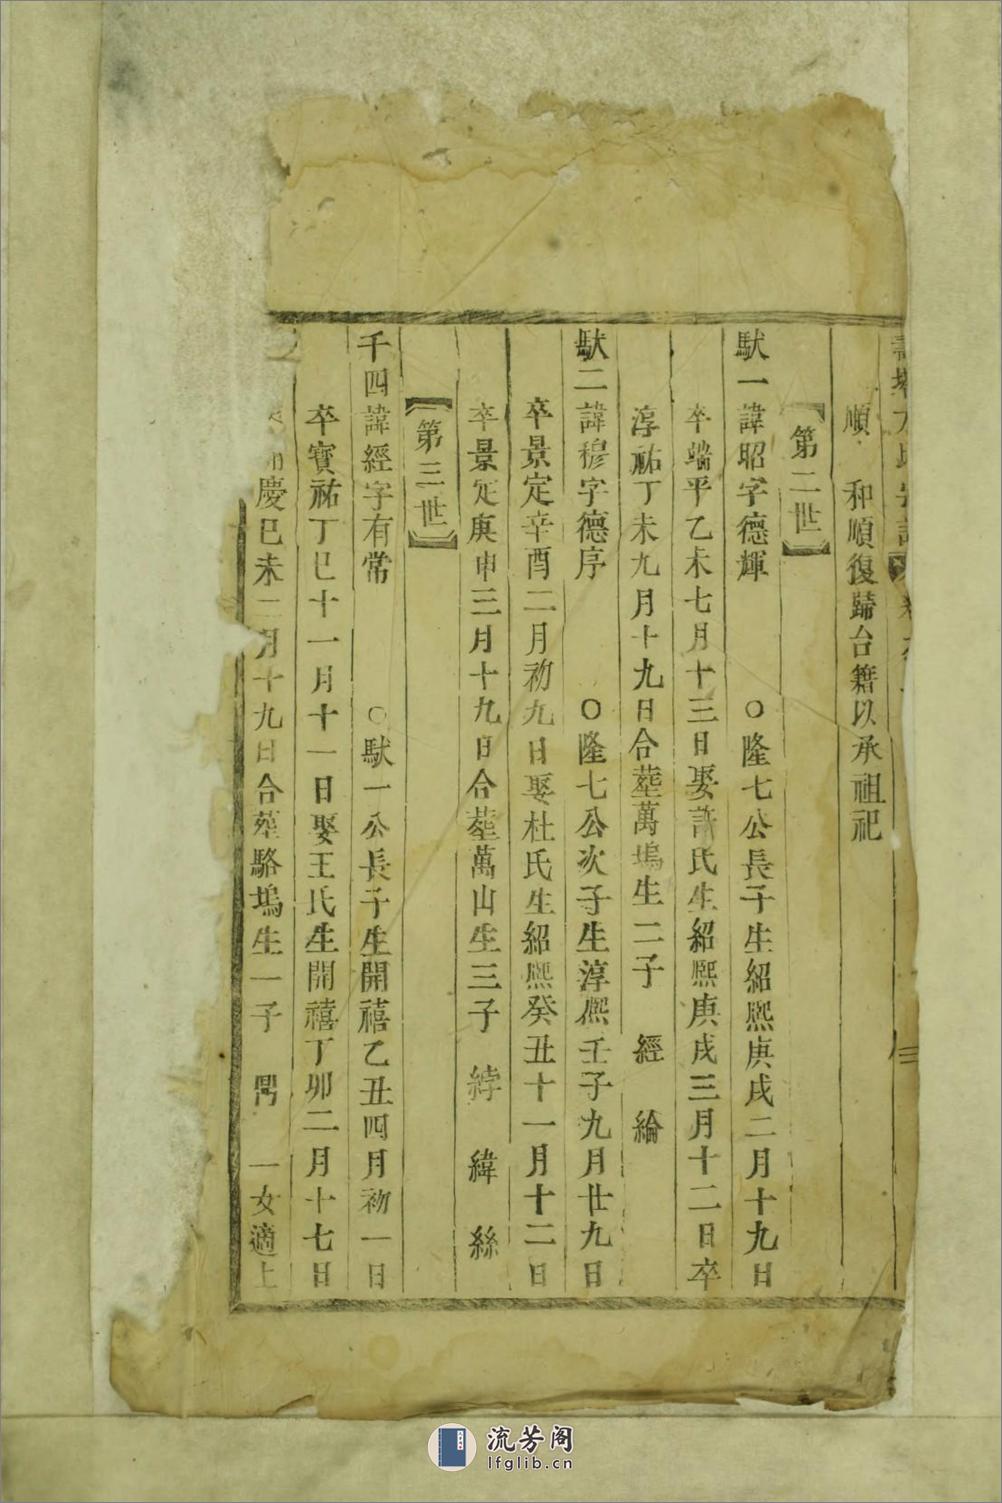 順 和順復歸台籍以承祖祀
【第二世】
馱一諱昭字德輝 ○隆七公長子生紹熙庚戌二月十九日
卒端平乙未七月十三日娶許氏生紹熙庚戌三月十二日卒
淳祐丁未九月十九日合塟萬塢生二子 經 綸
馱二諱穆字德序 ○隆七公次子生淳熙壬子九月廿九日
卒景定辛酉二月初九日娶杜氏生紹熙癸丑十一月十二日
卒景定庚申三月十九日合塟萬山生三子 綍 緯 絲
【第三世】
千四諱經字有常 ○馱一公長子生開禧乙丑四月初一日
卒寳祐丁巳十一月十一日娶王氏生開禧丁卯二月十七日
慶巳未二月十九日合塟駱塢生一子 閈 一女適上
流芳阁
lfglib.cn